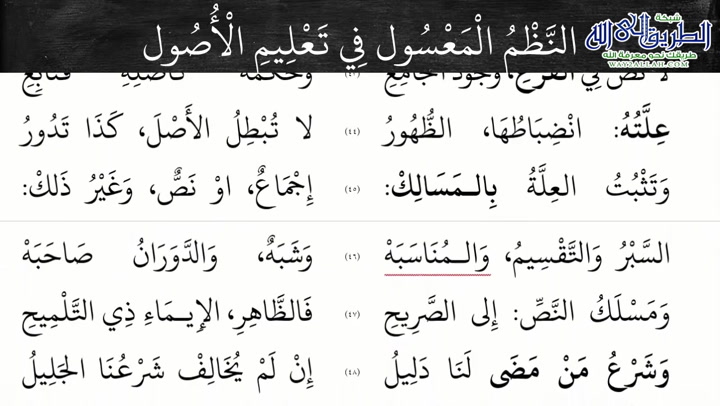 النَّظْمُ الْمَعْسُول فِي تَعْلِيمِ الْأُصُول
شبكة
الطريق إلى الله
طريقك نحو معرفة الله
WAY2ALLAH.COM
لا نَصَّ فِي الفَرْعِ، وُجُودُ الجَامِعِ (٤٣) وَحُكْمُهُ كَأَصْلِهِ فَتَابِعِ
عِلَّتُهُ: انْضِبَاطُهَا، الظُّهُورُ (٤٤) لا تُبْطِلُ الأَصْلَ، كَذَا تَدُورُ
وَتَثْبُتُ العِلَّةُ بِالـمَسَالِكْ: (٤٥) إِجْمَاعٌ، اوْ نَصٌّ، وَغَيْرُ ذَلكْ:
السَّبْرُ وَالتَّقْسِيمُ، وَالـمُنَاسَبَهْ (٤٦) وَشَبَهٌ، وَالدَّوَرَانُ صَاحَبَهْ
وَمَسْلَكُ النَّصِّ: إِلى الصَّرِيحِ (٤٧) فَالظَّاهِرِ، الإِيـمَاءِ ذِي التَّلْمِيحِ
وَشَرْعُ مَنْ مَضَى لَنَا دَلِيلُ (٤٨) إِنْ لَمْ يُخَالِفْ شَرْعُنَا الجَلِيلُ